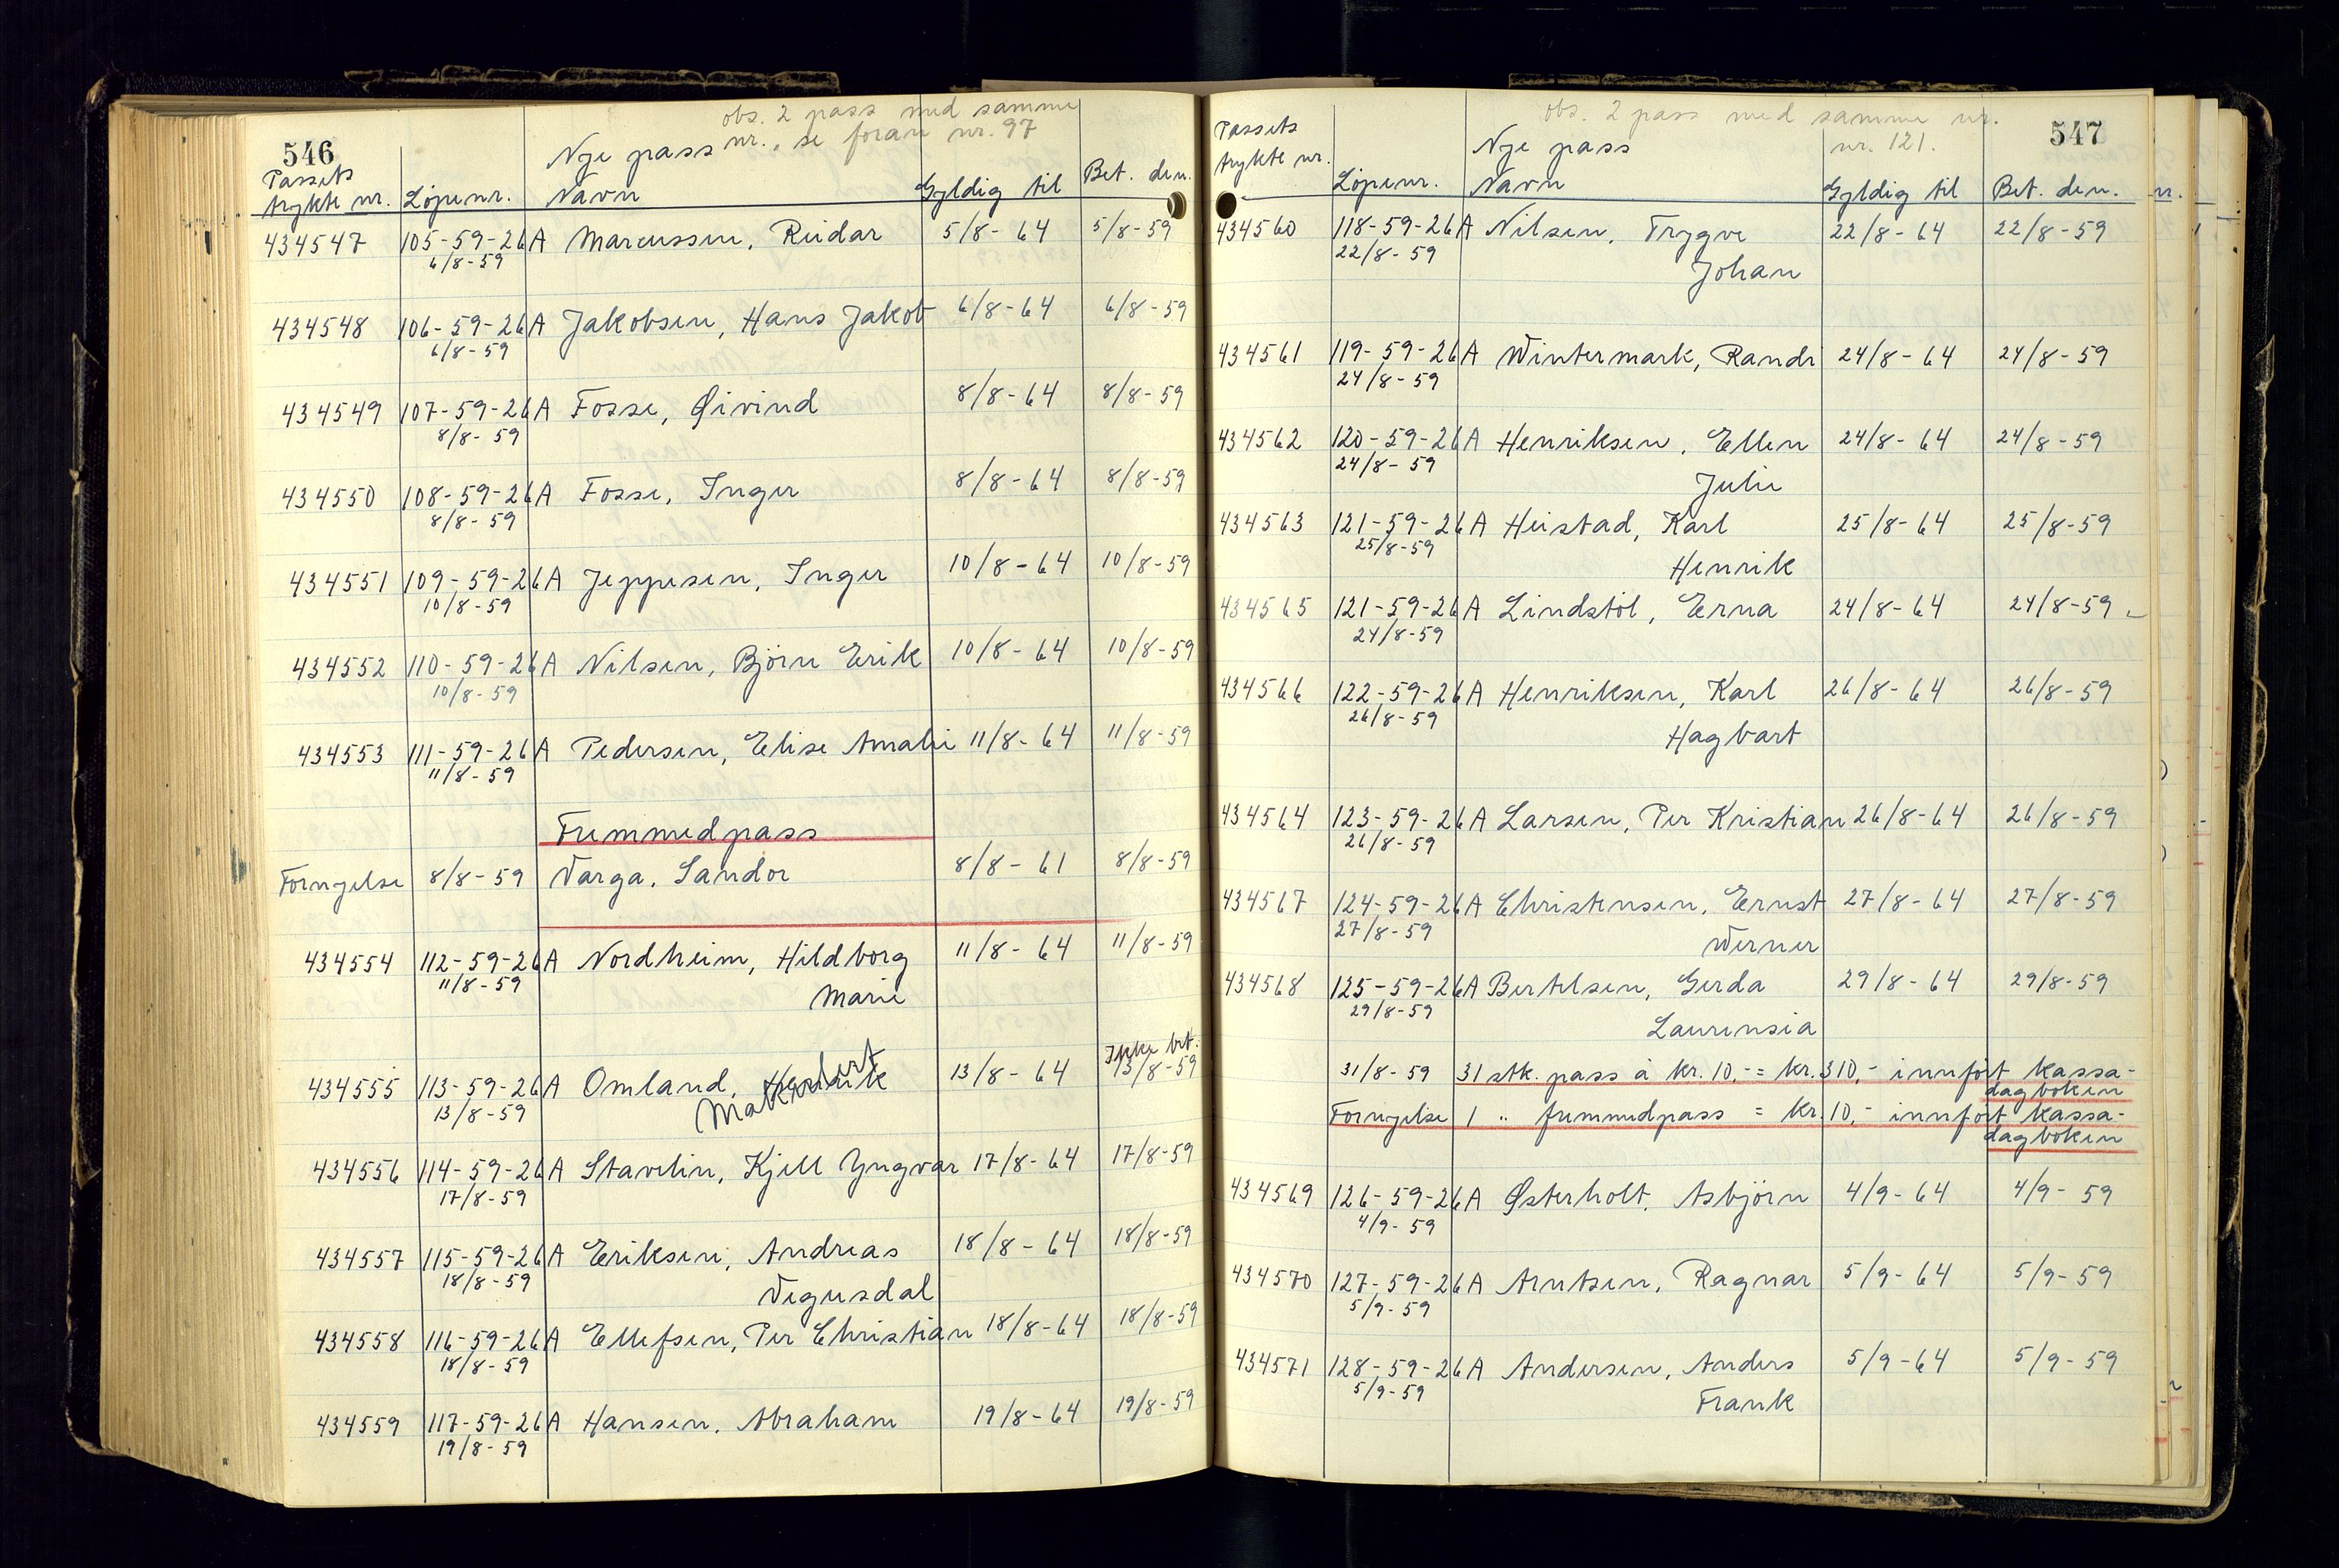 546
obs. 2 pass med samme
nr., se foran nr. 97
Nye pass
Passets
trykte nr. Löpenr. Navn Gyldig til Bet. den.
434547 105-59-26A Marcussen, Reidar 5/8-64 5/8-59
6/8-59
434548 106-59-26A Jakobsen, Hans Jakob 6/8-64 6/8-59
6/8-59
434549 107-59-26A Fosse, Øivind 8/8-64 8/8-59
8/8-59
434550 108-59-26A Fosse, Inger 8/8-64 8/8-59
8/8-59
434551 109-59-26A Jeppesen, Inger 10/8-64 10/8-59
10/8-59
434552 110-59-26A Nilsen, Björn Erik 10/8-64 10/8-59
10/8-59
434553 111-59-26A Pedersen, Elise Amalie 11/8-64 11/8-59
11/8-59
Fremmedpass
Fornyelse 8/8-59 Varga, Sandor 8/8-61 8/8-59
434554 112-59-26A Nordheim, Hildborg 11/8-64 11/8-59
11/8-59 Marie
Ikke bet.
434555 113-59-26A Omland, 13/8-64 13/8-59
13/8-59
434556 114-59-26A Stavelin, Kjell Yngvar 17/8-64 17/8-59
17/8-59
434557 115-59-26A Eriksen, Andreas 18/8-64 18/8-59
18/8-59 Vegusdal
434558 116-59-26A Ellefsen, Per Christian 18/8-64 18/8-59
18/8-59
434559 117-59-26A Hansen, Abraham 19/8-64 19/8-59
19/8-59
547
obs. 2 pass med samme nr.
nr. 121.
Passets Nye pass
trykte nr. Löpenr. Navn Gyldig til Bet. den.
434560 118-59-26A Nilsen, Trygve 22/8-64 22/8-59
22/8-59 Johan
434561 119-59-26A Wintermark, Randi 24/8-64 24/8-59
24/8-59
434562 120-59-26A Henriksen, Ellen 24/8-64 24/8-59
24/8-59 Julie
434563 121-59-26A Heistad, Karl 25/8-64 25/8-59
25/8-59 Henrik
434565 121-59-26A Lindstöl, Erna 24/8-64 24/8-59
24/8-59
434566 122-59-26A Henriksen, Karl 26/8-64 26/8-59
26/8-59 Hagbart
434564 123-59-26A Larsen, Per Kristian 26/8-64 26/8-59
26/8-59
434567 124-59-26A Christensen, Ernst 27/8-64 27/8-59
27/8-59 Werner
434568 125-59-26A Bertelsen, Gerda 29/8-64 29/8-59
29/8-59 Laurensia
31/8-59 31 stk. pass à kr. 10,- = kr. 310,- innfört kassa-
dagboken
Fornyelse 1 " fremmedpass = kr. 10,- innfört kassa-
dagboken
434569 126-59-26A Østerholt, Asbjörn 4/9-64 4/9-59
4/9-59
434570 127-59-26A Arntsen, Ragnar 5/9-64 5/9-59
5/9-59
434571 128-59-26A Andersen, Anders 5/9-64 5/9-59
5/9-59 Frank